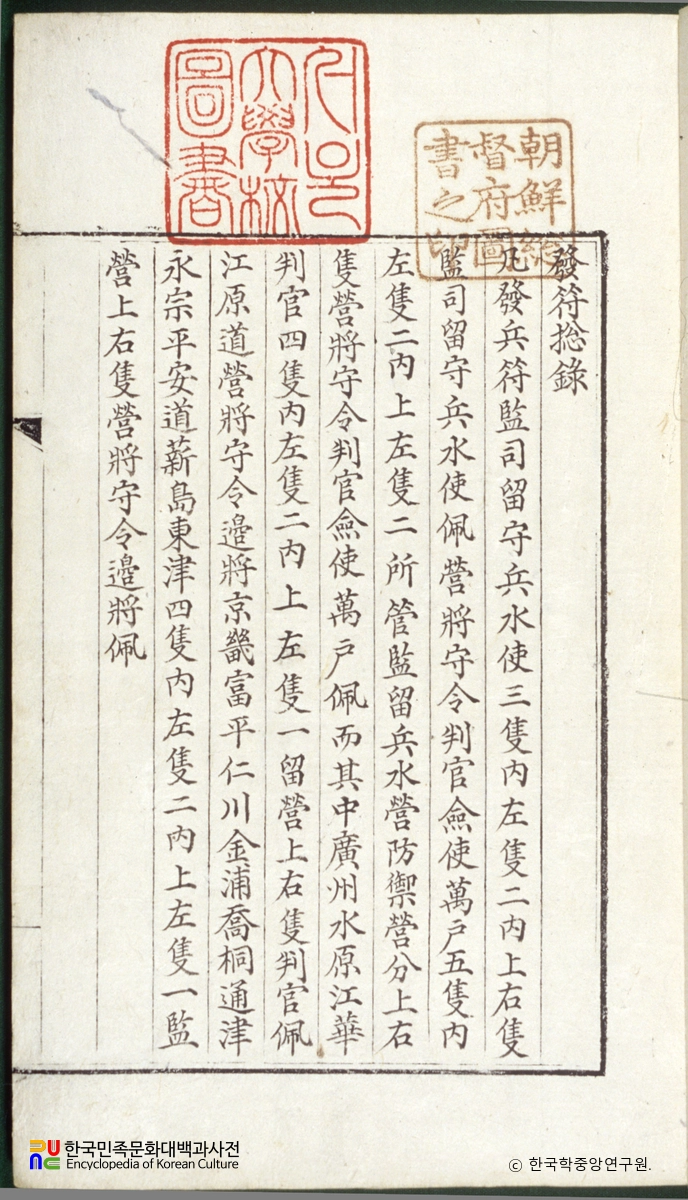 서울
大學校
圖書
朝鮮總
督府圖
書之印
發符捴錄
凡發兵符監司留守兵水使三隻內左隻二內上右隻
監司留守兵水使佩營將守令判官僉使萬戶五隻內
左隻二內上左隻二所管監留兵水營防禦營分上右
隻營將守令判官僉使萬戶佩而其中廣州水原江華
判官四隻內左隻二內上左隻一留營上右隻判官佩
江原道營將守令邉將京畿富平仁川金浦喬桐通津
永宗平安道薪島東津四隻內左隻二內上左隻一監
營上右隻營將守令邉將佩
한국민족문화대백과사전
Encyclopedia of Korean Culture
ⓒ 한국학중앙연구원.